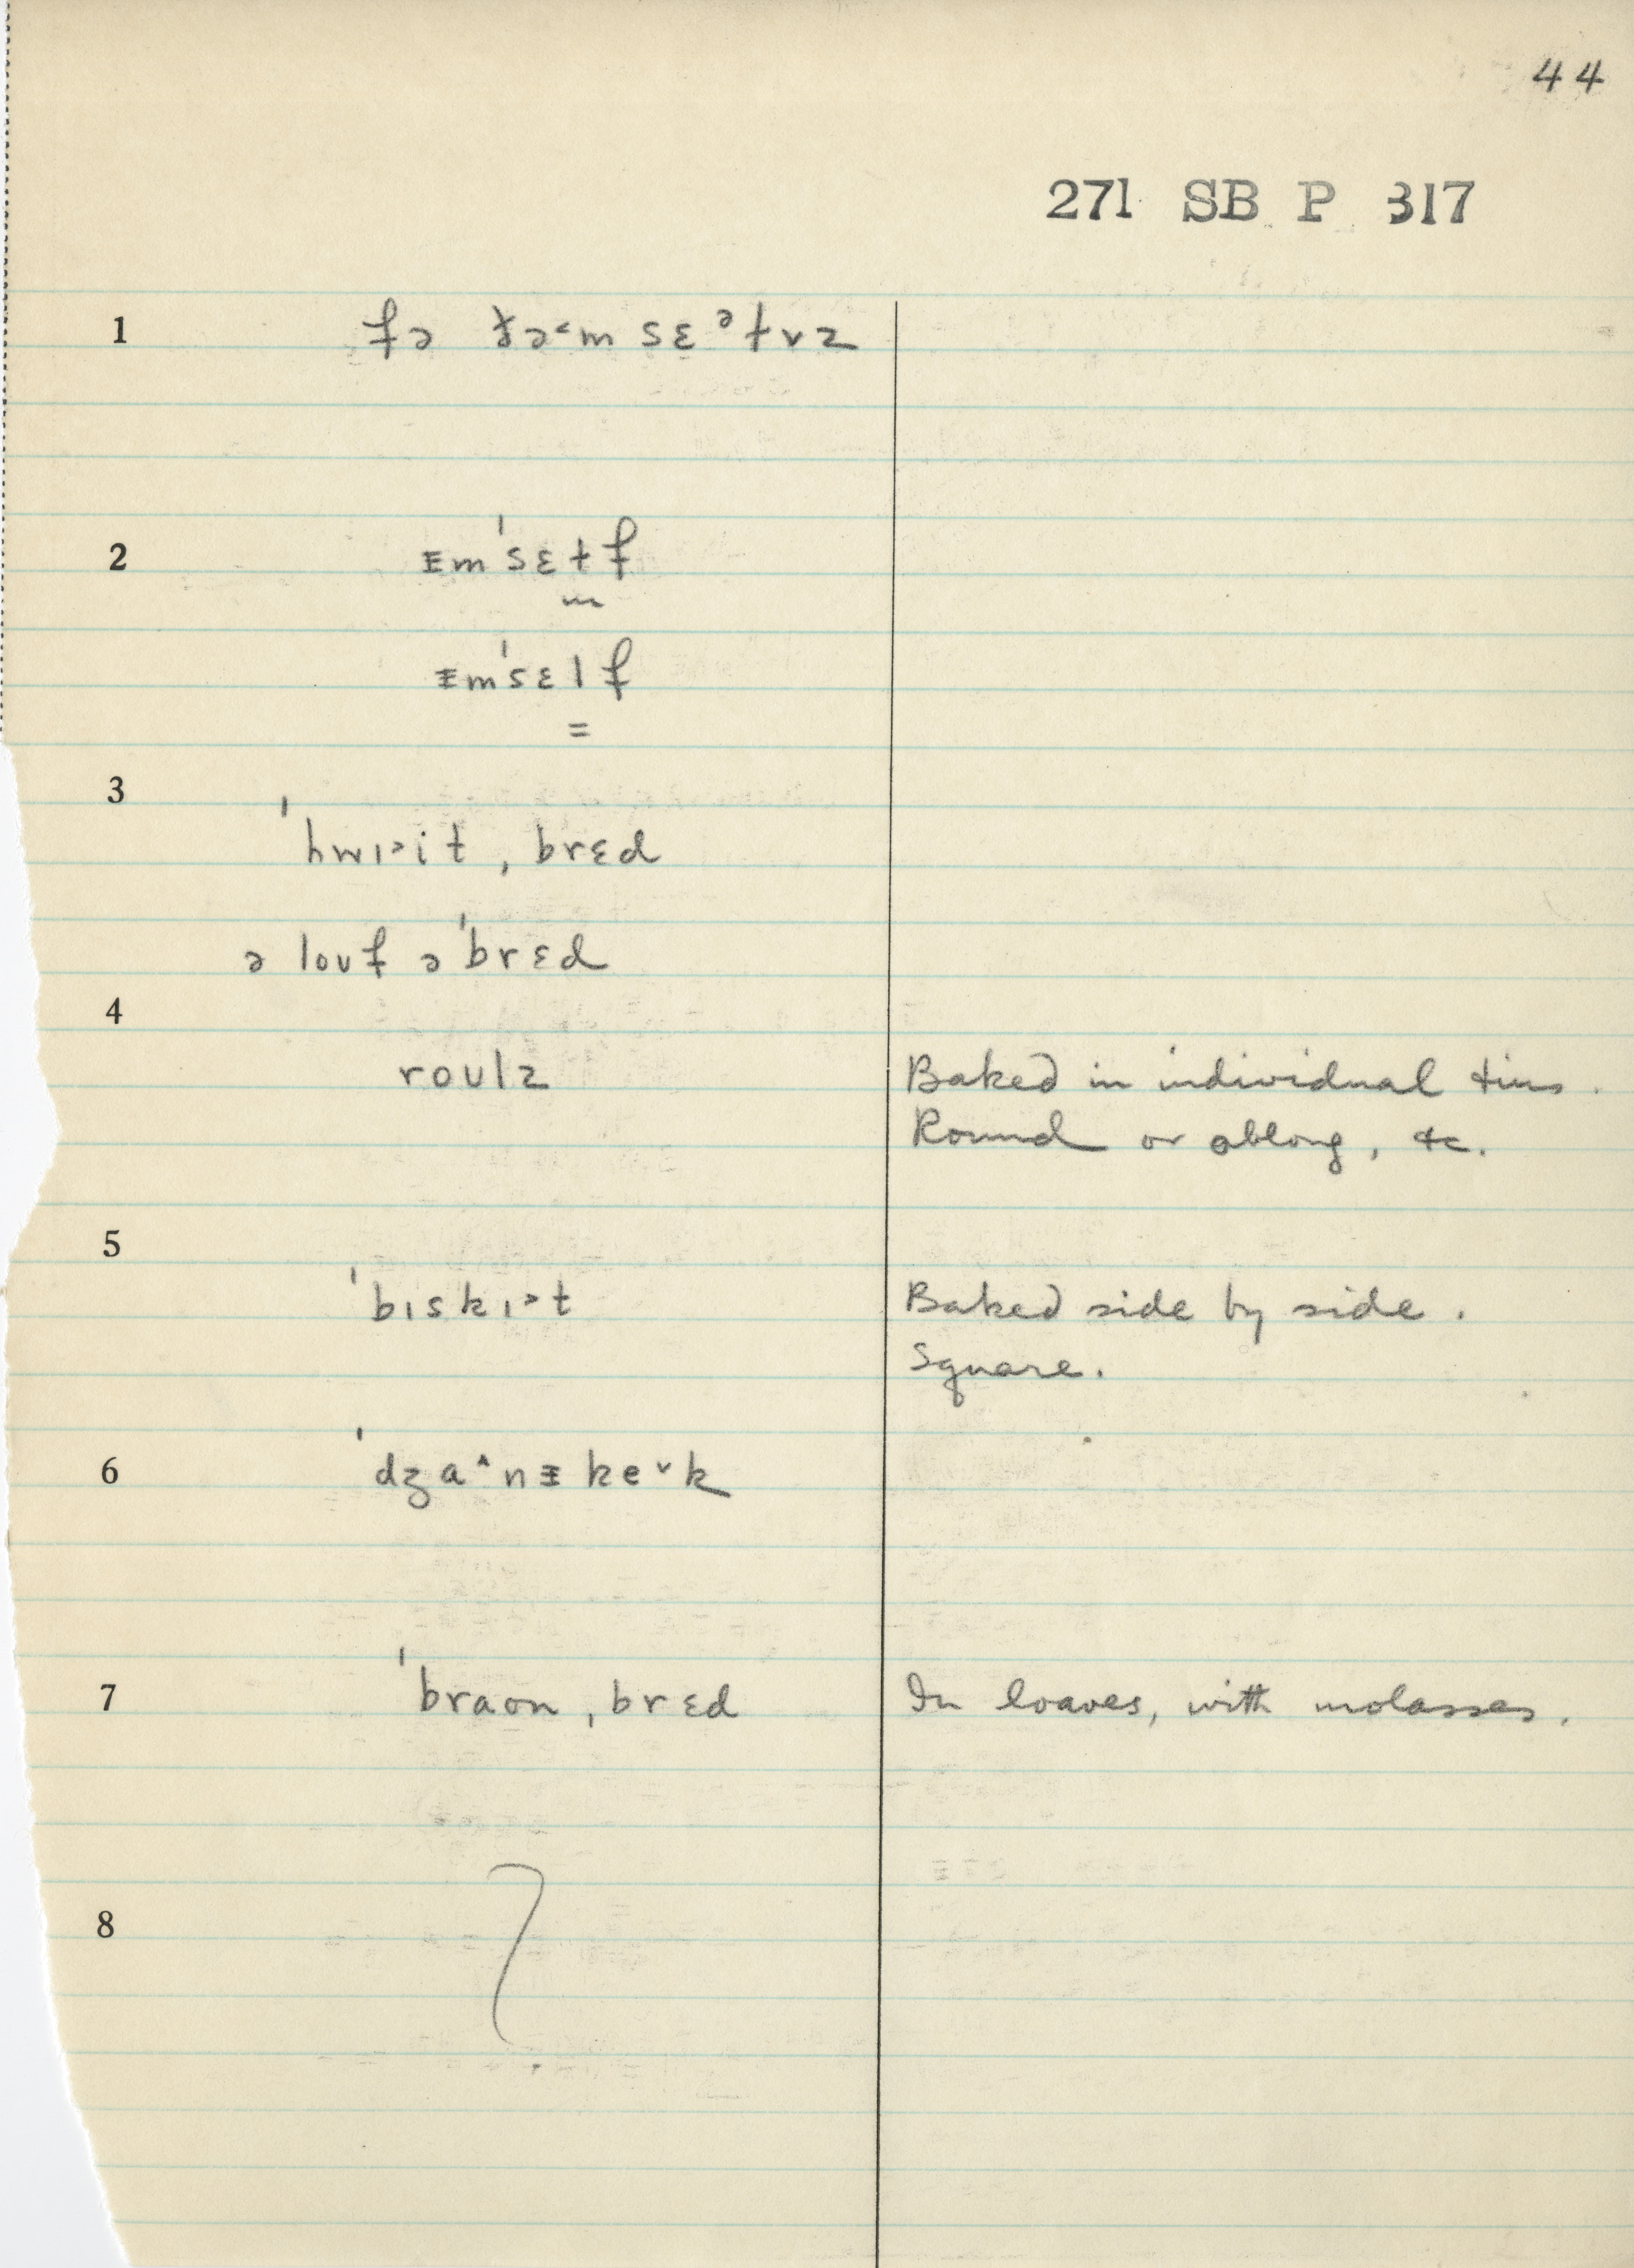 44
271 SB P 317
1 fə ðə˂m sɛᵊɫvz
2 ᵻm'sɛɫf
ᵻm'sɛlf
=
3
'hwɪ˃it ˌbrɛd
ə loʊf ə'brɛd
4
roʊlz Baked in individual tins.
Round or oblong, &c.
5
'bɪskɪ˃t Baked side by side.
Square.
6 'dʒa˄nᵻ ke˅k
7 'braʊn ˌbrɛd In loaves, with molasses.
8 ?